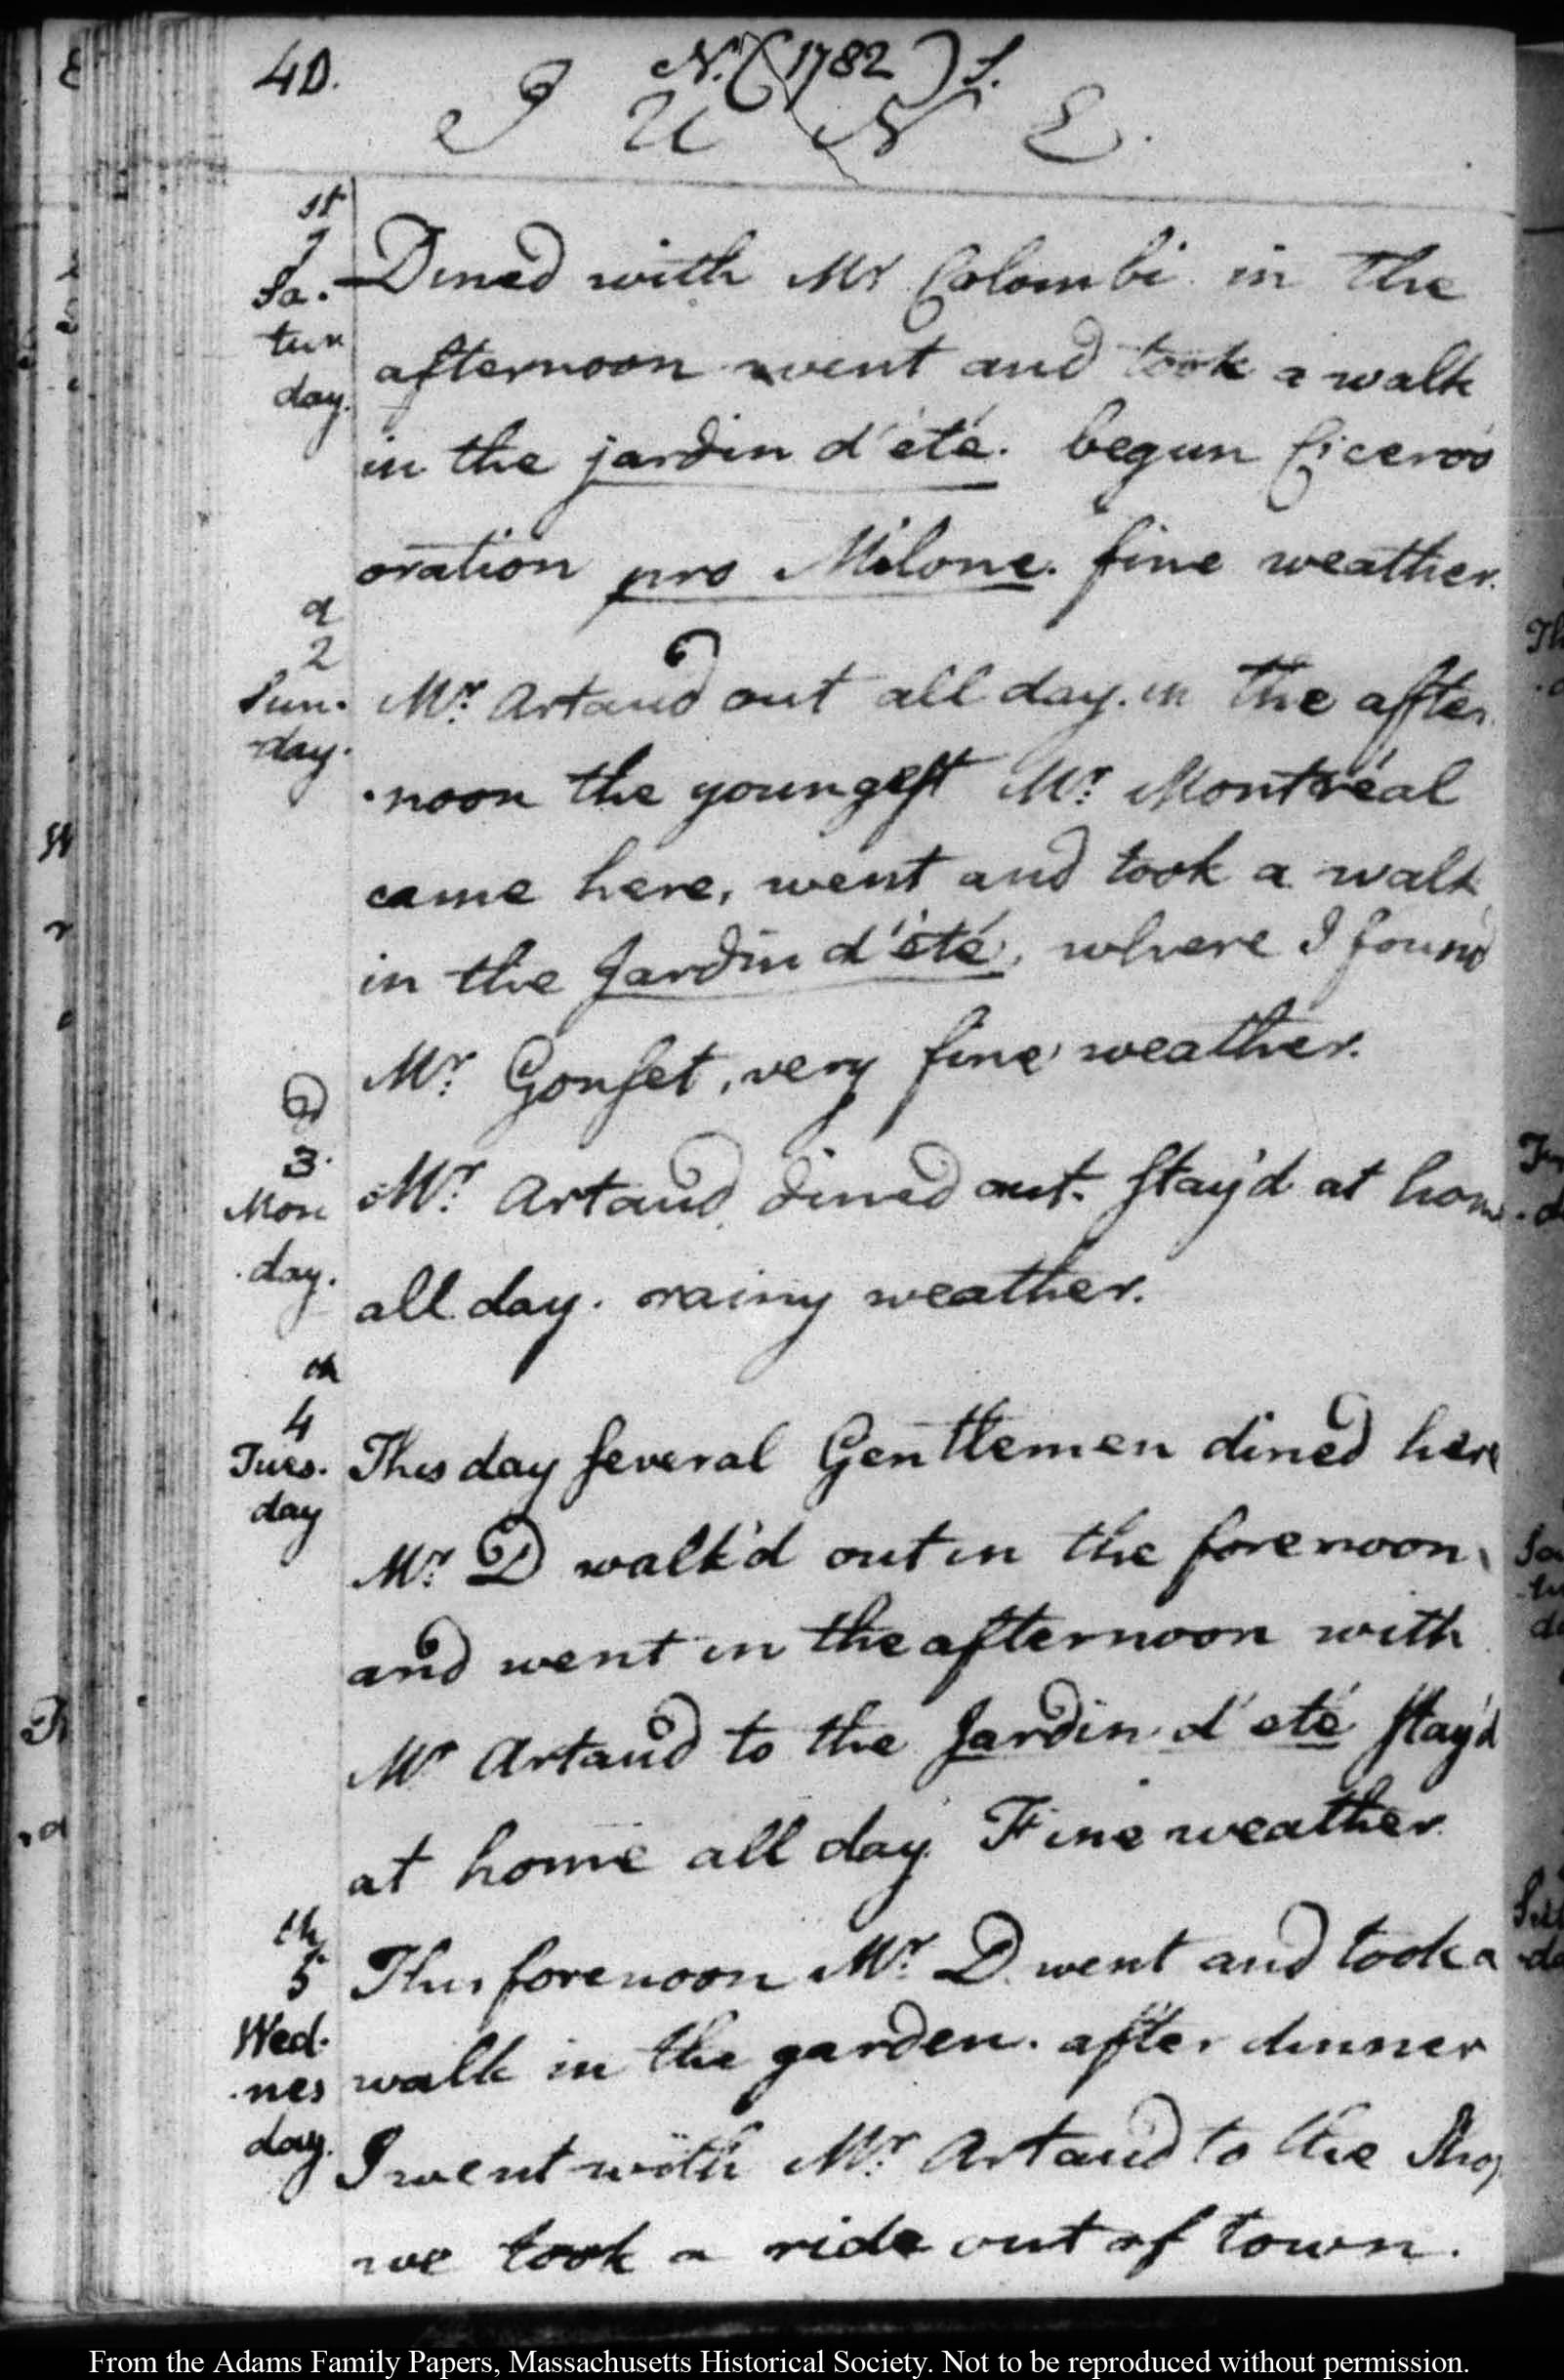 40.
N. (1782) S.
JUNE.
st
1
Sa.
tur
day.
Dined with Mr Colombi in the
afternoon went and took a walk
in the jardin d'été. begun Cicero's
oration pro Milone. fine weather.
d
2
Sun.
day.
Mr. Artaud out all day. in the after
noon the youngest Mr. Montréal
came here, went and took a walk
in the Jardin d'été, where I found
Mr. Gonset, very fine weather.
d
3.
Mon
day.
Mr. Artaud dined out. stay'd at home
all day. rainy weather.
th
4
Tues.
day
This day several Gentlemen dined here
Mr. D walk'd out in the forenoon,
and went in the afternoon with
Mr Artaud to the Jardin d'eté stay'd
at home all day. Fine weather.
th
5
Wed.
nes
day.
This forenoon Mr. D. went and took a
walk in the garden. after dinner
I went with Mr. Artaud to the Shop
we took a ride out of town.
From the Adams Family Papers, Massachusetts Historical Society. Not to be reproduced without permission.